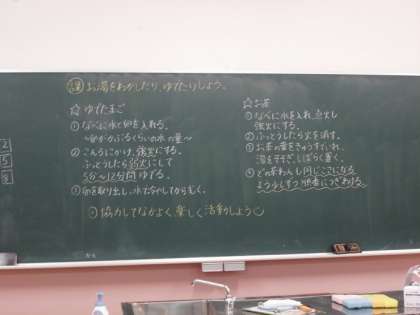 課 お湯をわかしたり ゆでたりしよう。
☆ゆでたまご
① なべに水と卵を入れる。
～卵がかぶるくらいの水の量～
② こんろにかけ、強火にする。
ふっとうしたら弱火にして
5分～12分間ゆでる。
③ 卵を取り出し、水で冷やしてから
☆お茶
① なべに水を入れ、点火し
強火にする。
② ふっとうしたら火を消す。
③ お茶の葉をきゅうすにいれ、
湯をそそぎ、しばらく置く。
④ どの茶わんも同じこさになる
よう少しずつ順番につぎわける。
協力してなかよく、楽しく活動しよう
2
5